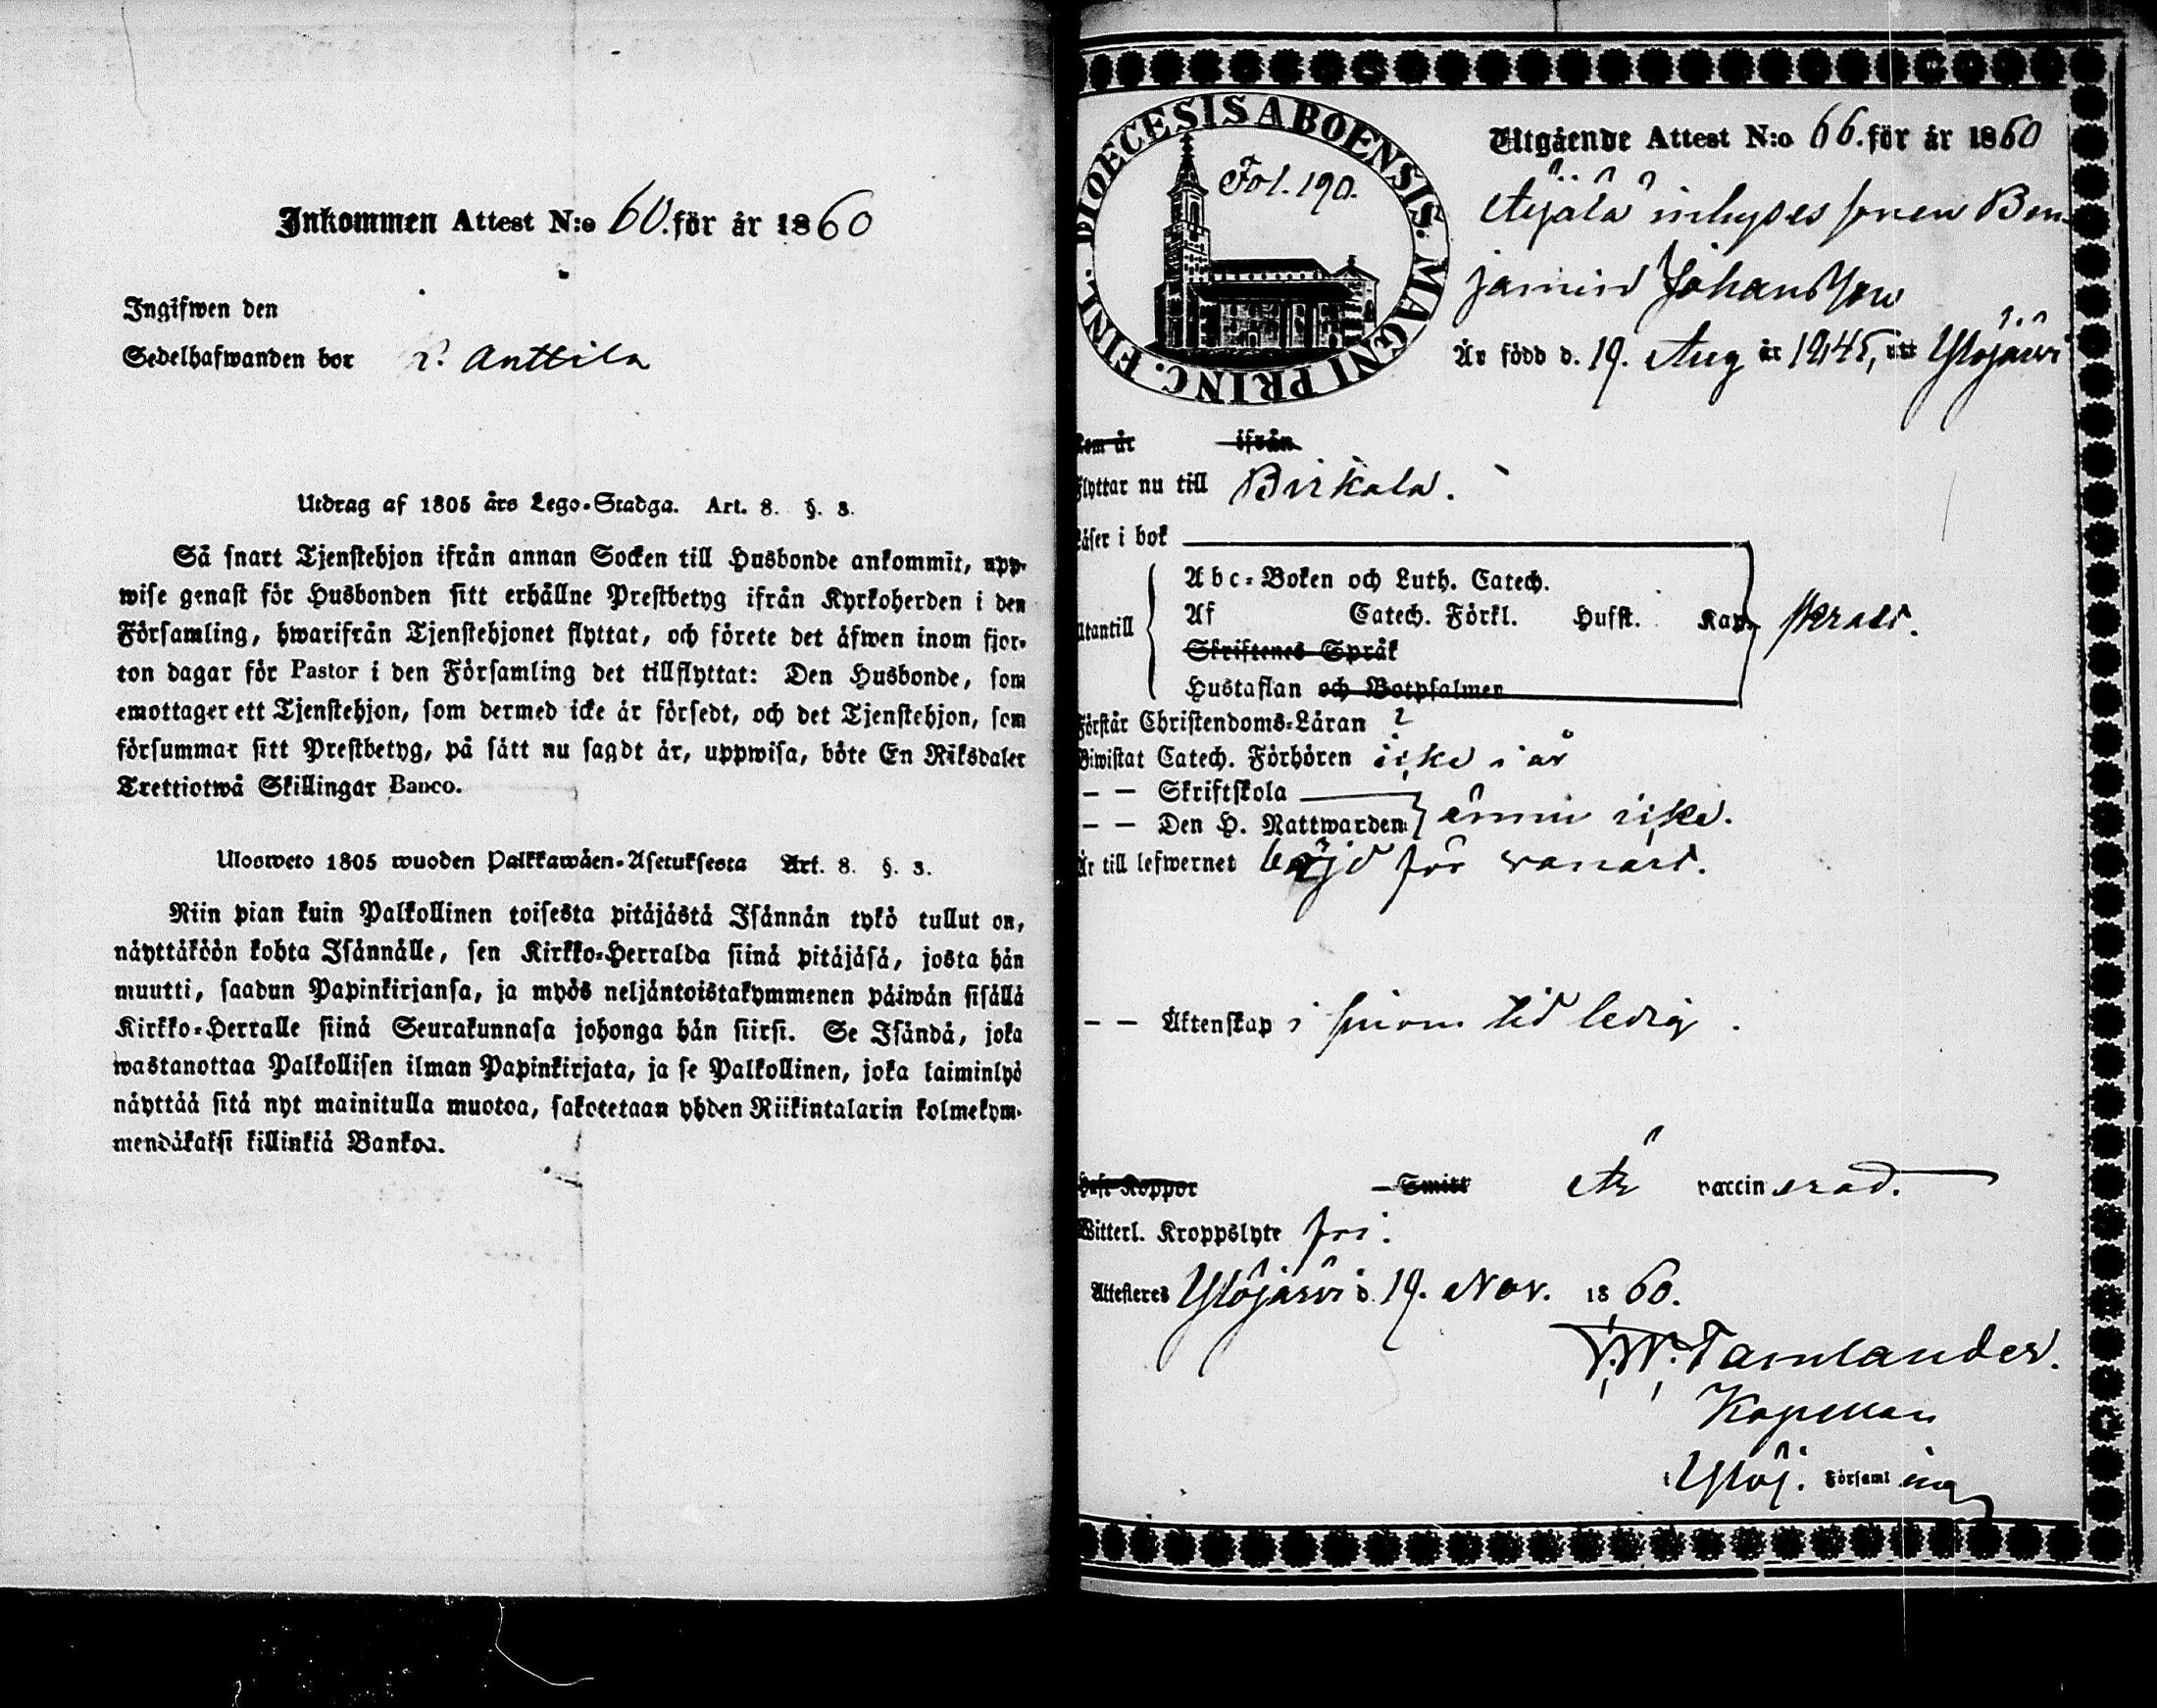 Inkommen Attest N:o 60. för år 1860
Ingifwen den
Sedelhafwanden bor P. Anttila
Utdrag af 1805 års Lego-Stadga. Art. 8. §. 3.
Så snart Tjenstehjon ifrån annan Socken till Husbonde ankommit, upp-
wise genast för Husbonden sitt erhållne Prestbetyg ifrån Kyrkoherden i den
Församling, hwarifrån Tjenstehjonet flyttat, och förete det äfwen inom fjor-
ton dagar för Pastor i den Församling det tillflyttat: Den Husbonde, som
emottager ett Tjenstehjon, som dermed icke är försedt, och det Tjenstehjon, som
försummar sitt Prestbetyg, på sätt nu sagdt är, uppwisa, böte En Riksdaler
Trettiotwå Skillingar Banco.
Ulosweto 1805 wuoden Palkkawäen-Asetuksesta Art. 8. §. 3.
Niin pian kuin Palkollinen toisesta pitäjästä Isännän tykö tullut on,
näyttäköön kohta Isännälle, sen Kirkko-Herralda siinä pitäjäsä, josta hän
muutti, saadun Papinkirjansa, ja myös neljäntoistakymmenen päiwän sisällä
Kirkko-Herralle siinä Seurakunnasa johonga hän siirsi. Se Isändä, joka
wastanottaa Palkollisen ilman Papinkirjata, ja se Palkollinen, joka laiminlyö
näyttää sitä nyt mainitulla muotoa, sakotetaan yhden Riikintalarin kolmekym-
mendäkaksi killinkiä Bankoa.
DIOECESIS ABOENSIS. MAGNI PRINC. FINL.
Fol. 190.
Utgående Attest N:o 66. för år 1860
Äijälä inhyses sonen Ben-
jamin Johansson
Är född d. 19. Aug år 1845, i Ylöjärvi
Kom år ifrån
Flyttar nu till Birkala.
Läser i bok
Abc-Boken och Luth. Catech.
Utantill Af Catech. Förkl. Husst. Kap.
Skriftenes Språk
Hustaflan och Botpsalmer
Förstår Christendoms-Läran ?
Biwistat Catech. Förhören icke i år
— — Skriftskola
— — Den H. Nattwarden ännu icke.
Är till lefwernet för
— — Äktenskap i sinom tid ledig.
Haft Koppor — Smitt Är vaccinerad.
Witterl. Kroppslyte fri.
Attesteras Ylöjärvi d. 19. Nov. 1860.
Tamlander.
Kapellan
i Ylöj. Församling